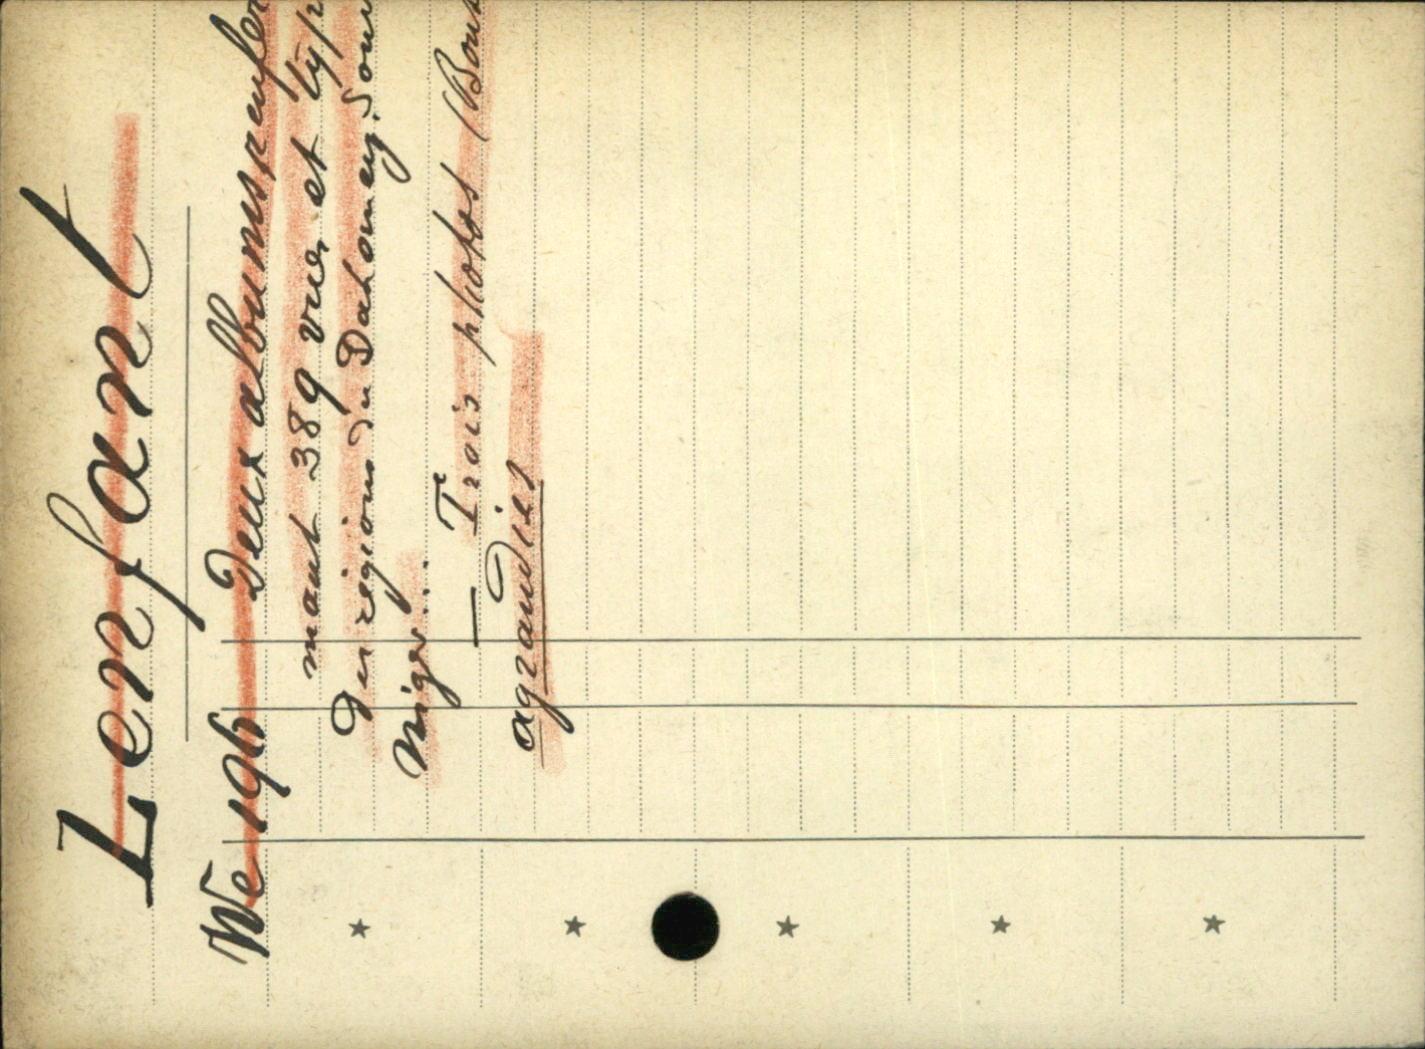 Lenfant
We 196 Deux albums renfer
mant 389 vues et typ
des régions du Dahomey. Sou
Niger...
— Trois photos (Bou
agrandies